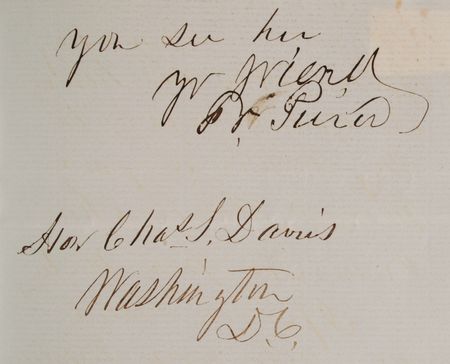 you see her
yr friend
Hon Chas. S. Davis
Washington
D.C.